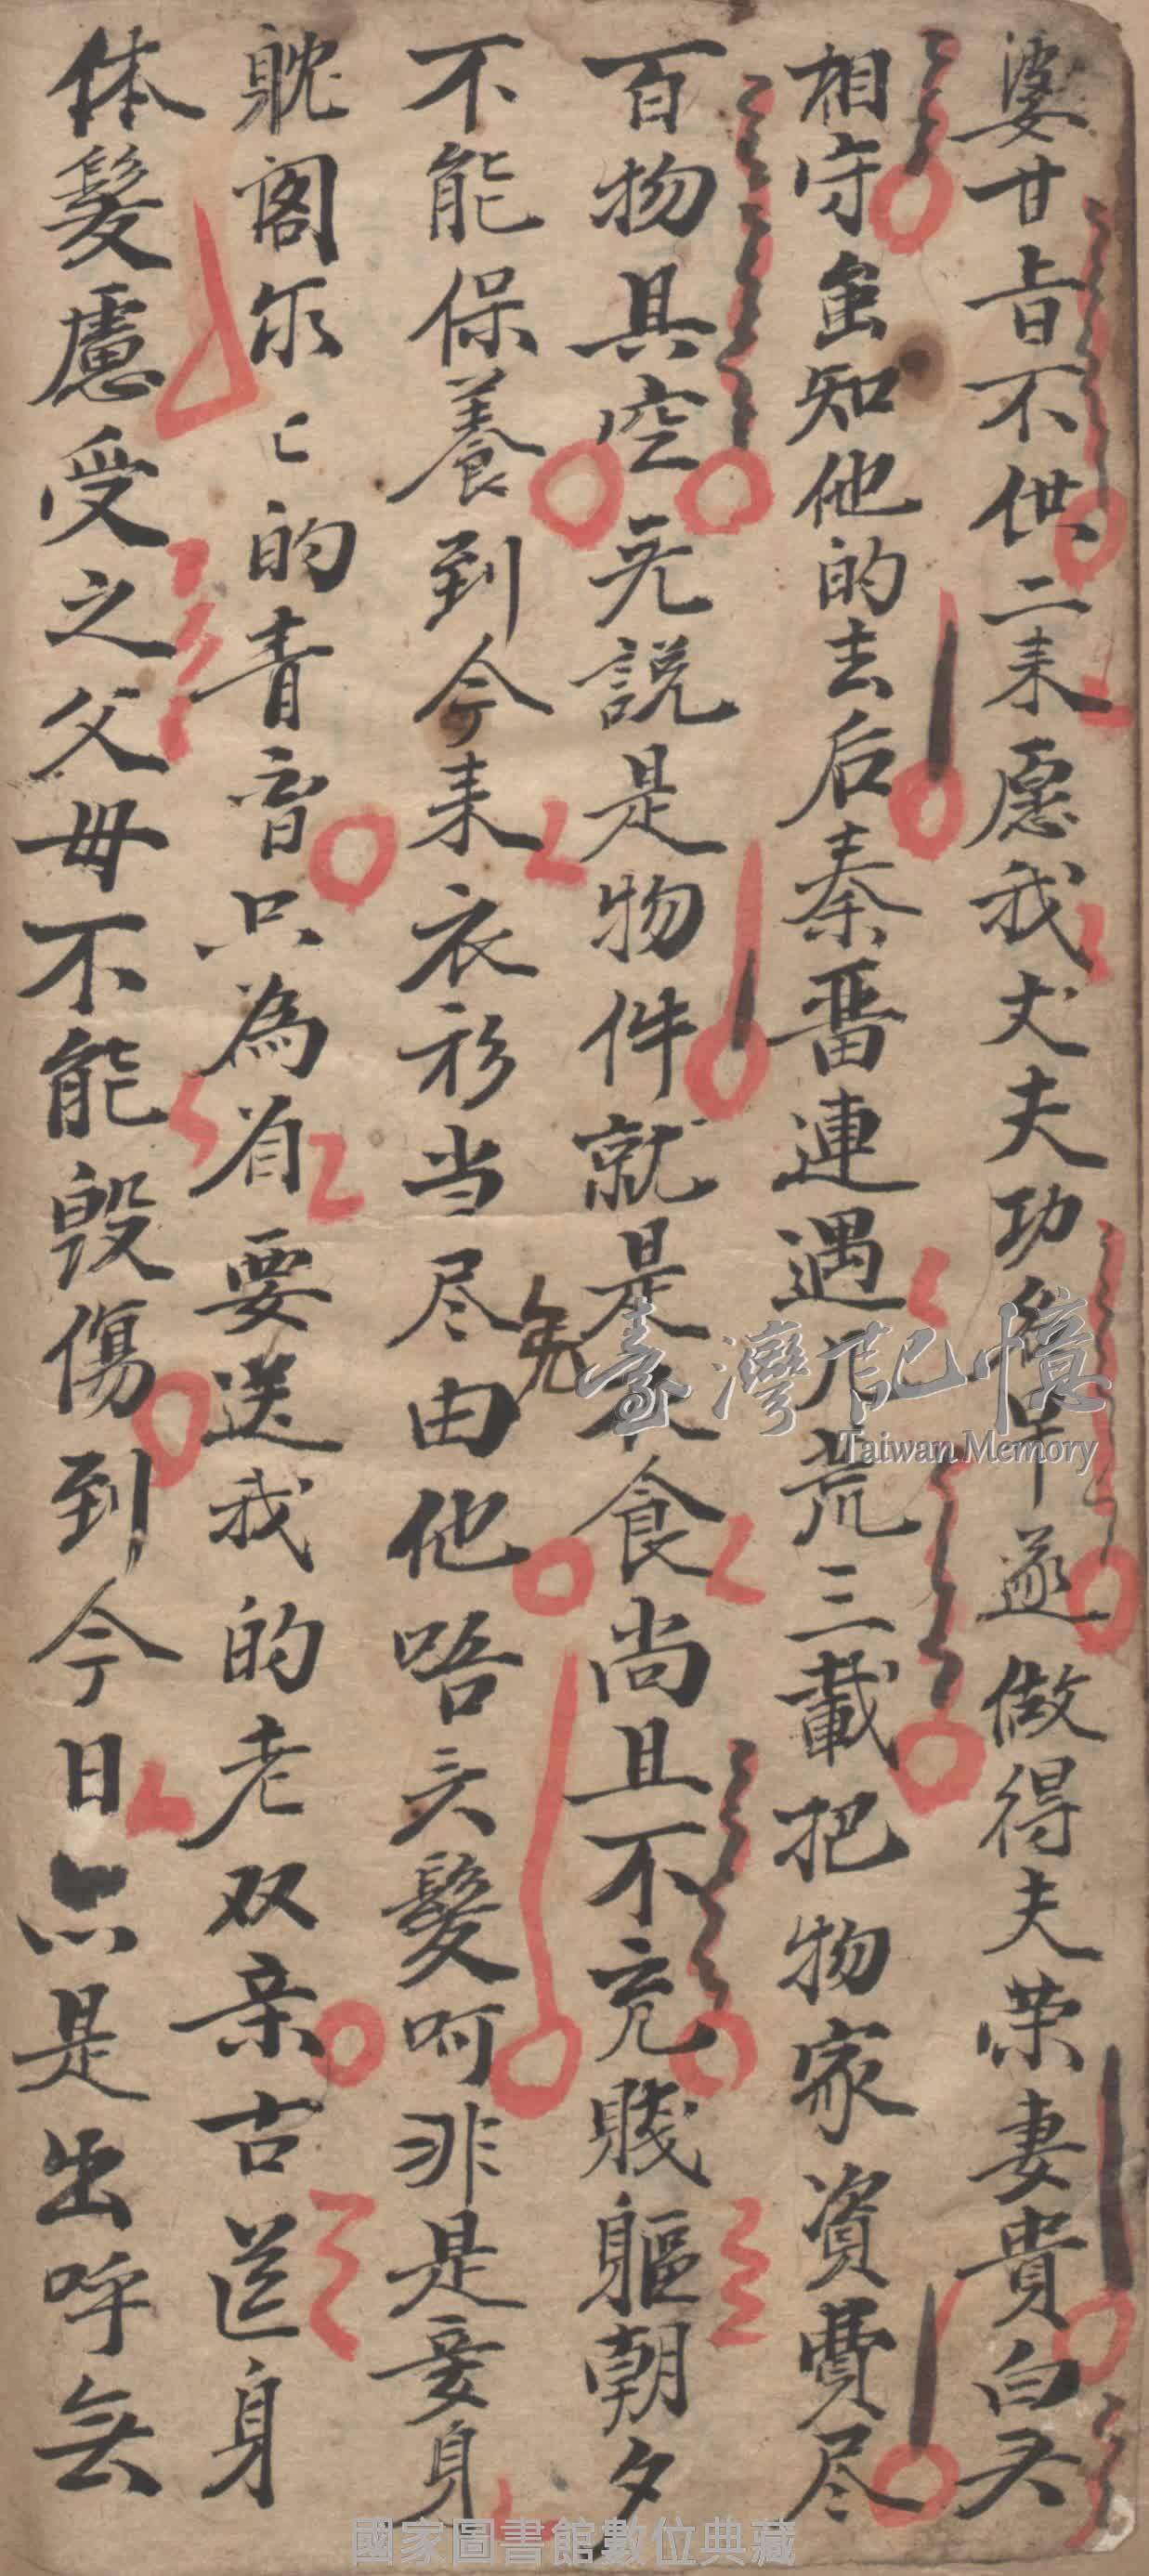 婆甘旨不供二耒愿我丈夫功早遂做得夫荣妻貴白头
相守虽知他的去后秦晋連遇荒三載把物家資費尽
百物具空无説是物件就是衣食尚且不充賤軀朝夕
不能保養到今耒衣衫当尽由他唔头髮呵非是妾身
免
躭阁尔匕的青音只為着要送我的老双亲古道身
体髮膚受之父母不能毁傷到今日只是出呼無
臺灣記憶
Taiwan Memory
國家圖書館數位典藏